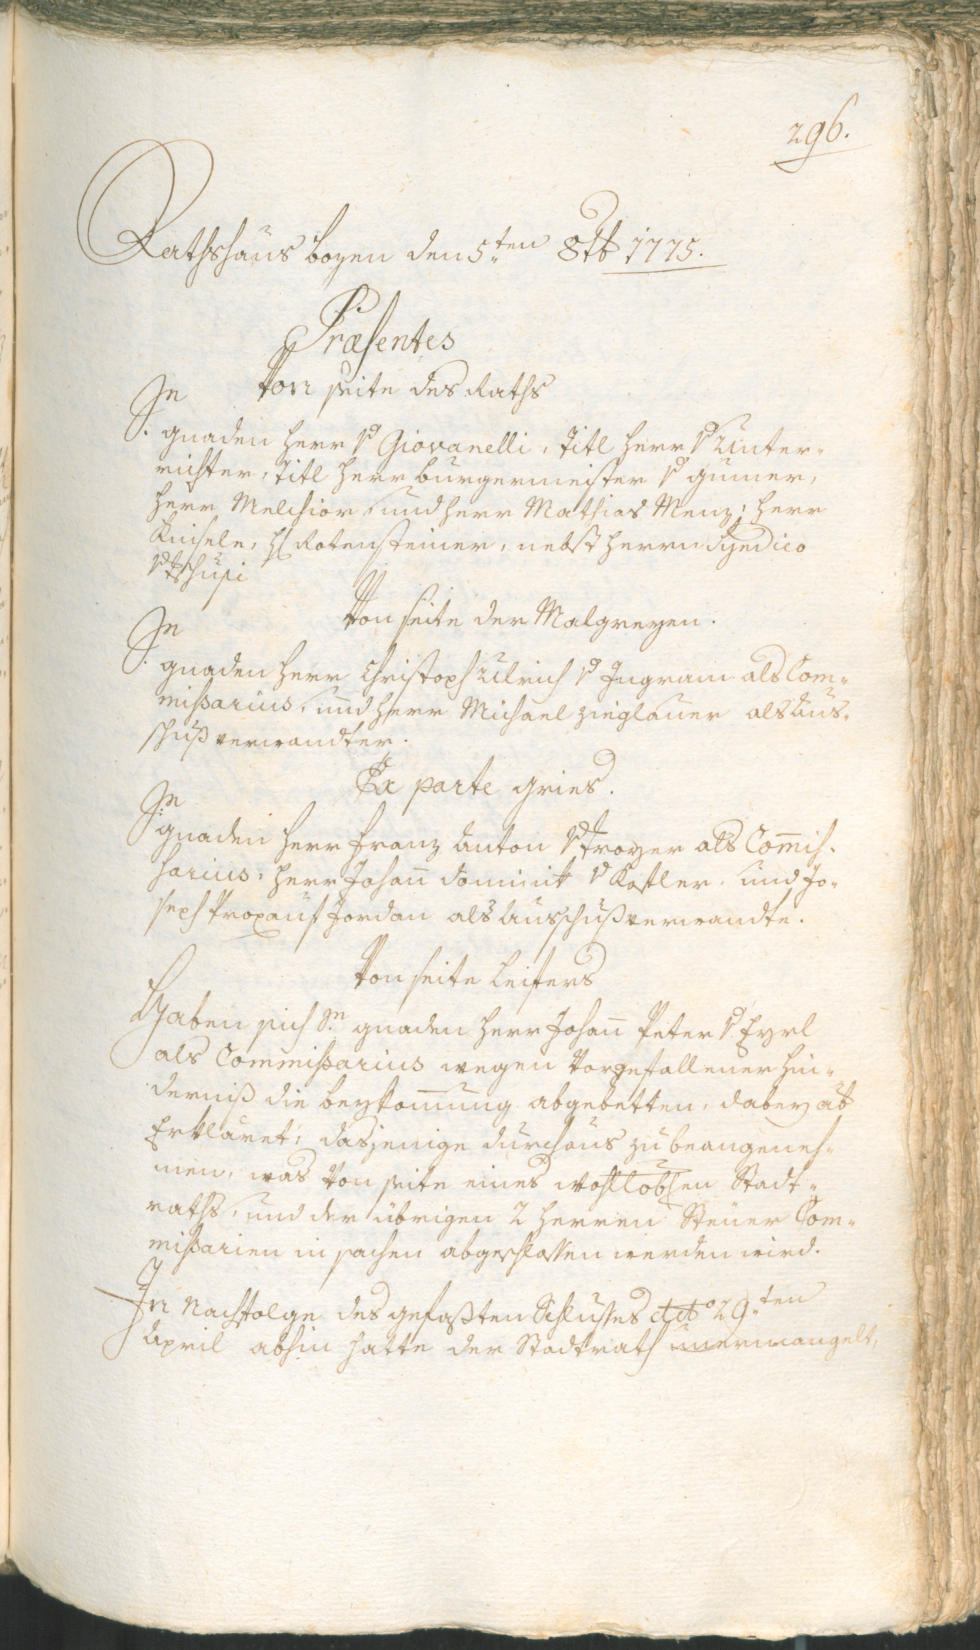 296.
Rathshaus Bozen den 5.ten 8tb 1775.
Præsentes
Von seite des Raths
Se
gnaden Herr v Giovanelli, Titl Herr v Unter-
richter, Titl Herr burgermeister v gumer,
Herr Melchior, und Herr Mathias Menz, Herr
Knisele, H Rotensteiner, nebst Herrn Syndico
v Tschusi
Von seite der Malgreyen.
Se
gnaden Herr Christoph Ulrich v Ingram als Com-
missarius, und Herr Michael Zieglauer als Aus-
schuß verwandter.
Ex parte gries.
Se
gnaden Herr Franz Anton v Troyer als Com̅is-
sarius, Herr Johan̅ Dominik v Kostler, und Jo-
seph Propauf Jordan als Ausschuß verwandte.
Von seite Leifers
Haben sich Se gnaden Herr Johan̅ Peter v Eyrl
als Commissarius wegen Vorgefallener Hin-
derniß die beykom̅ung abgebetten, dabey ab
Erkläret, dasjenige durchaus zu beangeneh-
men, was Von seite eines wohllobℓen Stadt-
raths, und der übrigen 2 Herren Steuer Com-
missarien in sachen abgeschlossen werden wird.
In Nachfolge des gefaßten Schlusses ddto 29.ten
April abhin hatte der Stadtrath unermangelt,